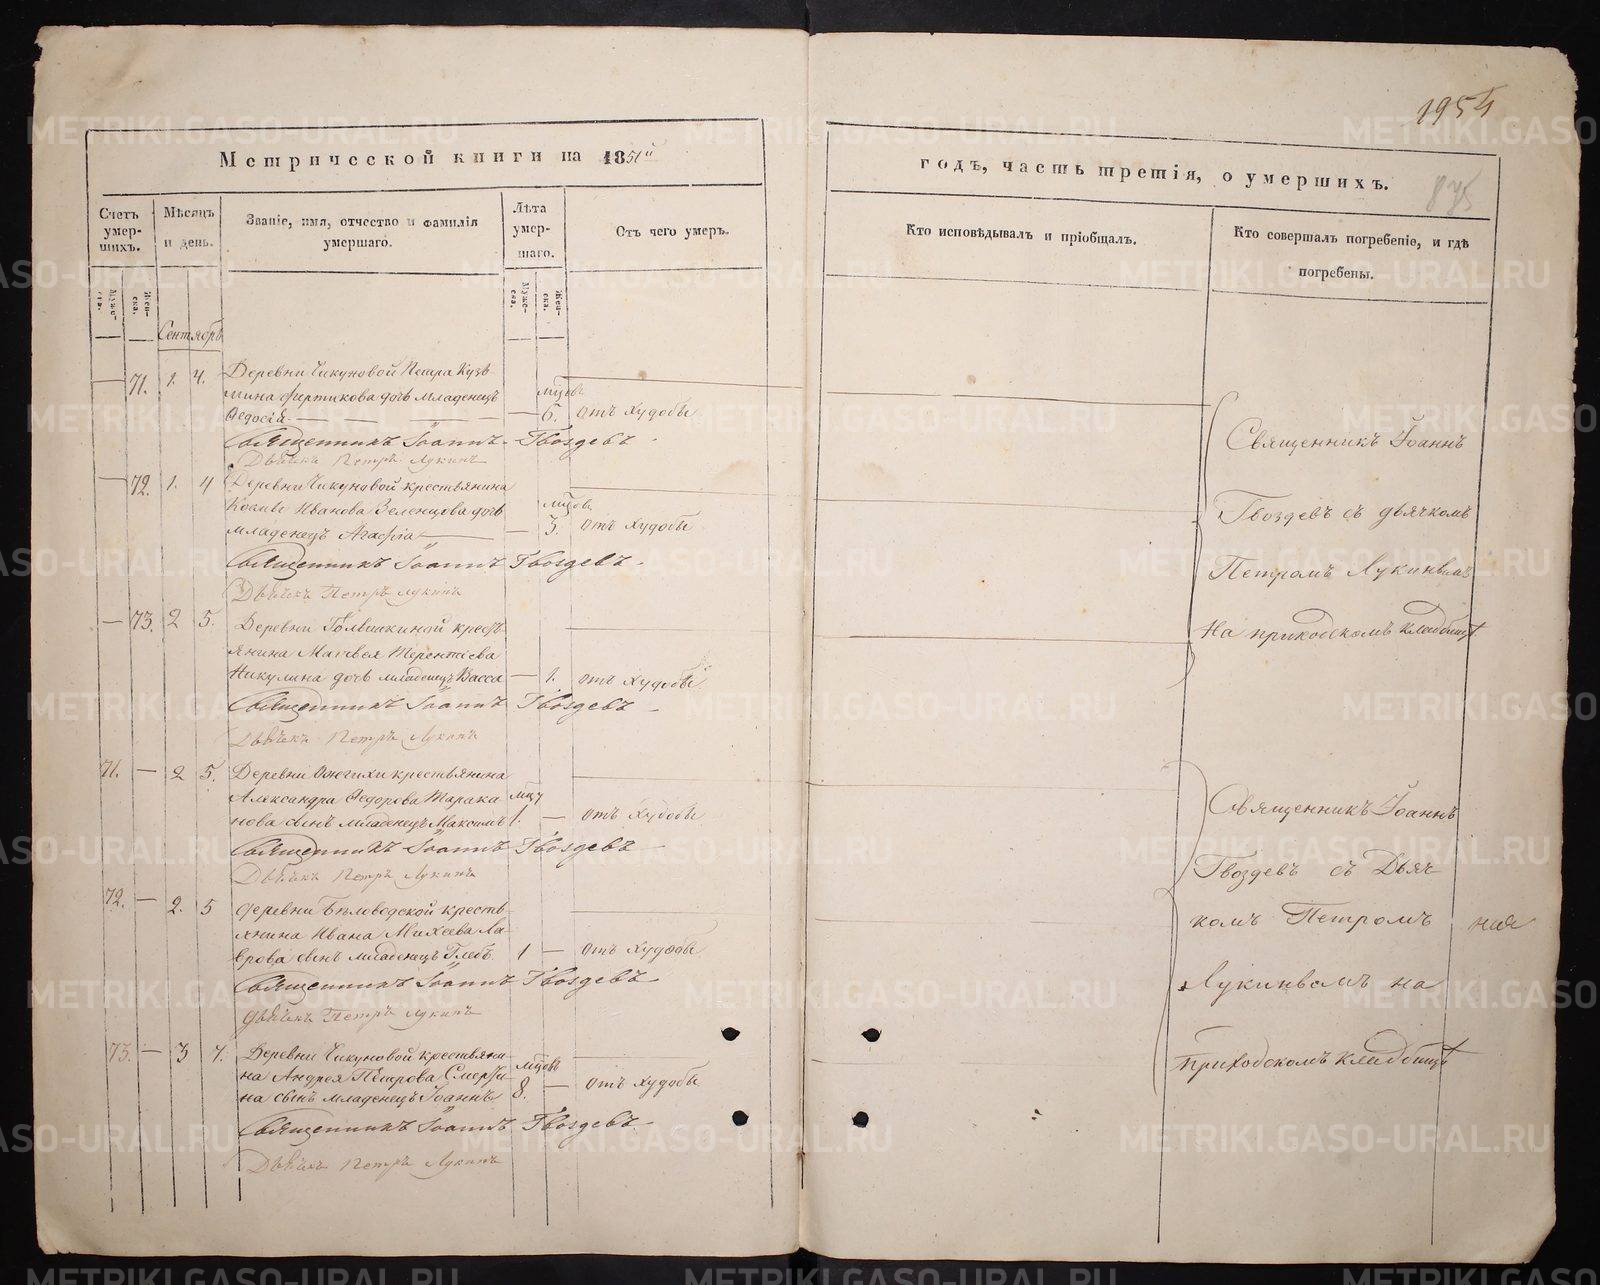 1954
875
Метрической книги на 1851й
годъ, часть третія, о умершихъ.
Счетъ умер-шихъ.
Мѣсяцъ и день.
Званіе, имя, отчество и фамилія умершаго.
Лѣта умер-шаго.
Отъ чего умеръ.
Кто исповѣдывалъ и пріобщалъ.
Кто совершалъ погребеніе, и гдѣ погребены.
Муже-ска.
Жен-ска.
Муже-ска.
Жен-ска.
Сентябрь
71. 1. 4. Деревни Чикуновой Петра Кузь-
мина Фиртикова дочь младенецъ мцовъ
Ѳедосія 6. отъ худобы
Священникъ Іоаннъ Гвоздевъ
Дьячекъ Петръ Лукинъ
72. 1. 4 Деревни Чикуновой крестьянина
Козмы Иванова Зеленцова дочь мцовъ
младенецъ Агафія 3. отъ худобы
Священникъ Іоаннъ Гвоздевъ
Дьячекъ Петръ Лукинъ
73. 2 5. Деревни крес-
янина Матвея Терентіева
Никулина дочь младенецъ Васса 1. отъ худобы
Священникъ Іоаннъ Гвоздевъ
Дьячекъ Петръ Лукинъ
Священникъ Іоаннъ
Гвоздевъ съ дьячкомъ
Петромъ Лукинымъ
На приходскомъ кладбищѣ
71. 2 5. Деревни Ожгихи крестьянина
Александра Ѳедорова Тарака мцъ
нова сынъ младенецъ Максимъ 1. отъ худобы
Священникъ Іоаннъ Гвоздевъ
Дьячекъ Петръ Лукинъ
72. 2. 5 Деревни Бѣловодской кресть-
янина Ивана Михеева Ла-
врова сынъ младенецъ Глебъ 1 отъ худобы
Священникъ Іоаннъ Гвоздевъ
Дьячекъ Петръ Лукинъ
73. 3 7. Деревни Чикуновой крестьяни-
на Андрея Петрова мцовъ
на сынъ младенецъ Іоаннъ 8. отъ худобы
Священникъ Іоаннъ Гвоздевъ
Дьячекъ Петръ Лукинъ
Священникъ Іоаннъ
Гвоздевъ съ Дьяч-
комъ Петромъ
Лукинымъ на
приходскомъ кладбищѣ
METRIKI.GASO-URAL.RU